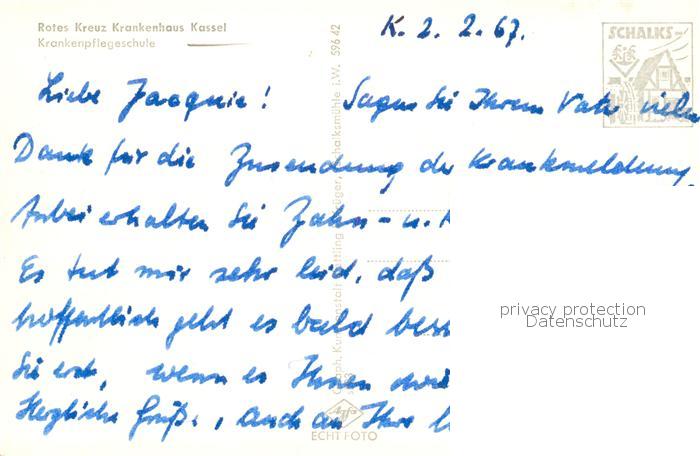 Rotes Kreuz Krankenhaus Kassel
Krankenpflegeschule
K. 2. 2. 67.
SCHALKS-
Liebe Jacquie! Sagen Sie Ihrem Vater vielen
Dank für die Zusendung der Krankmeldung.
Anbei erhalten Sie Zahn- u.
Es tut mir sehr leid, daß
hoffentlich geht es bald bess
Sie erst, wenn es Ihnen
Herzliche Grüße, auch an Ihre
596 42
Schalksmühle i.W.
Agfa
ECHT FOTO
privacy protection
Datenschutz